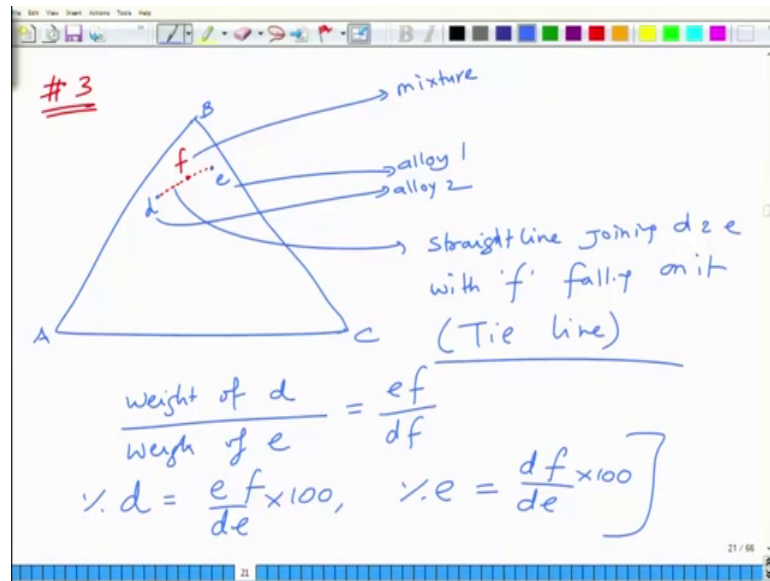 File Edit View Insert Actions Tools Help
B I
# 3
mixture
B
f
e
alloy 1
alloy 2
d
straight line joining d & e
with 'f' falling on it
(Tie line)
A
C
weight of d / weigh of e = ef / df
% d = ef/de × 100, % e = df/de × 100 ]
21 / 66
21